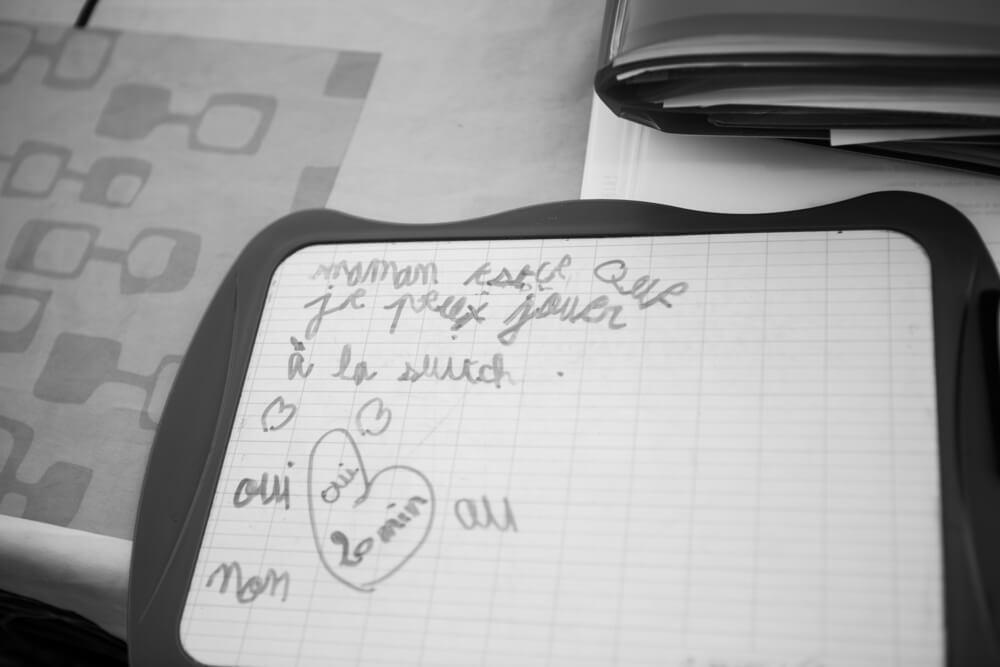 maman esece que
je peux jouer
à la suitch .
oui oui ou
20 min
non